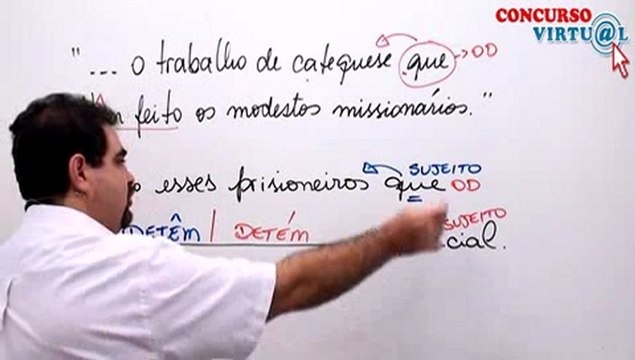 CONCURSO
VIRTU@L
"... o trabalho de catequese que → OD
feito os modestos missionários."
SUJEITO
esses prisioneiros que OD
SUJEITO
DETÊM / DETÉM cial.